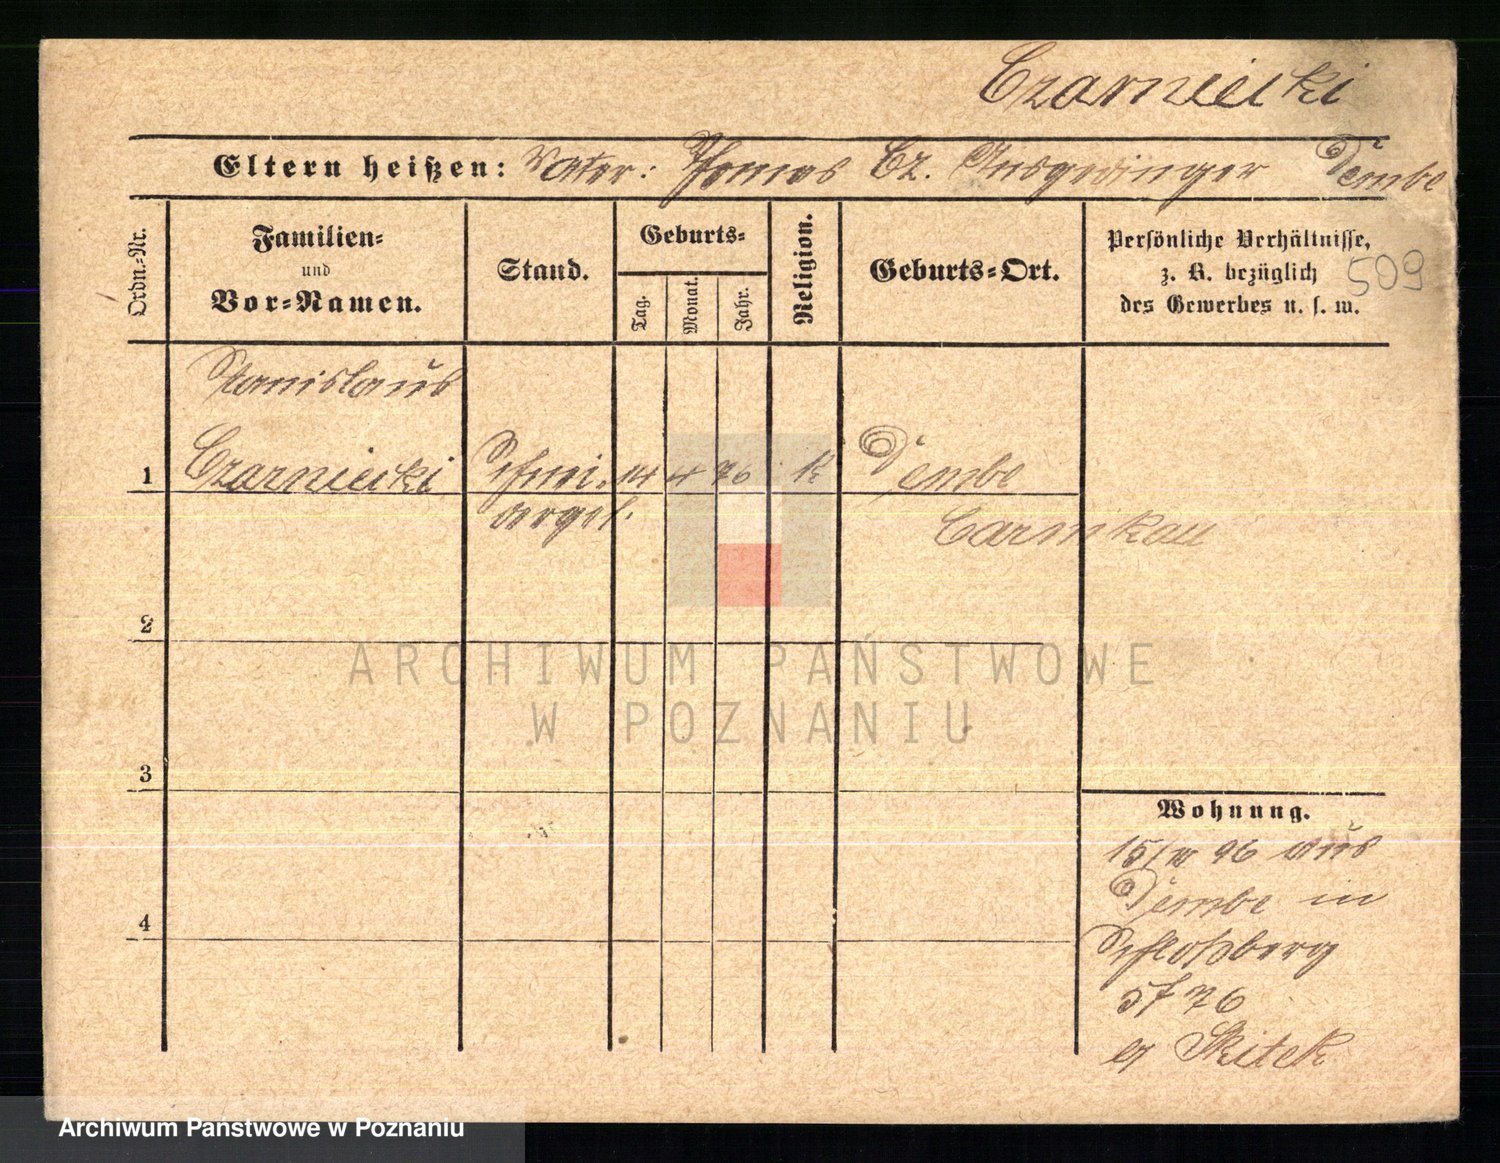 Czarniecki
Eltern heißen: Vater: Thomas Cz. Ausgedinger Dembe
Ordn.-Nr.
Familien-
und
Vor-Namen.
Stand.
Geburts-
Tag.
Monat.
Jahr.
Religion.
Geburts-Ort.
Persönliche Verhältnisse,
z. B. bezüglich
des Gewerbes u. s. w.
509
Stanislaus
1 Czarniecki Schnei- 14 4 76 K Dembe
dergel.
Czarnikau
2
3
4
ARCHIWUM PAŃSTWOWE
W POZNANIU
Wohnung.
15/10 96 aus
Dembe in
Schloßberg
5 f 76
Skitek
Archiwum Państwowe w Poznaniu